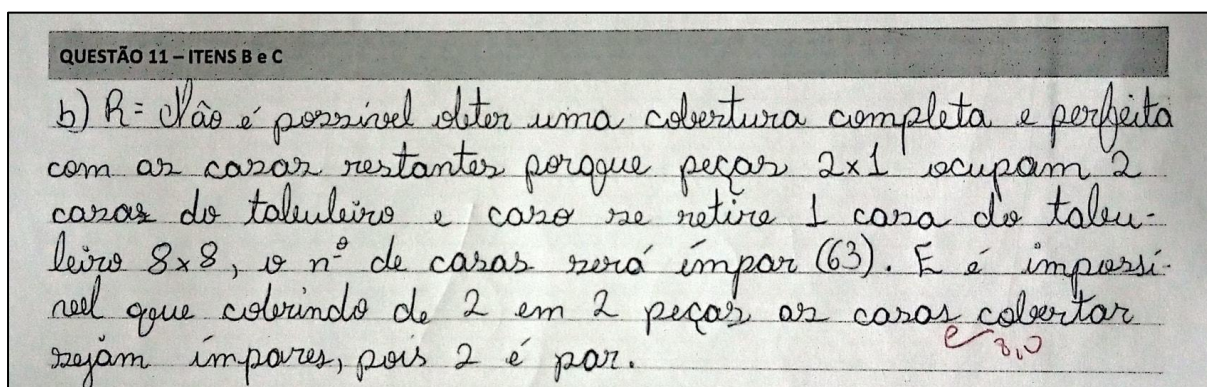 QUESTÃO 11 – ITENS B e C
b) R = Não é possível obter uma cobertura completa e perfeita
com as casas restantes porque peças 2x1 ocupam 2
casas do tabuleiro e caso se retire 1 casa do tabu-
leiro 8x8, o nº de casas será ímpar (63). E é impossí-
vel que cobrindo de 2 em 2 peças as casas cobertas
sejam ímpares, pois 2 é par.
3,0